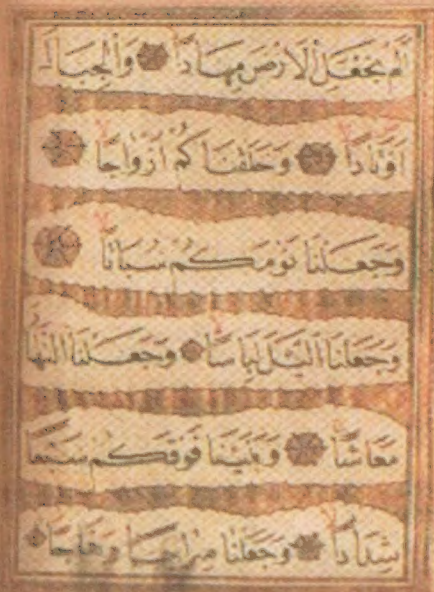 أَلَمْ نَجْعَلِ الْأَرْضَ مِهَادًا وَالْجِبَالَ
أَوْتَادًا وَخَلَقْنَاكُمْ أَزْوَاجًا
وَجَعَلْنَا نَوْمَكُمْ سُبَاتًا
وَجَعَلْنَا اللَّيْلَ لِبَاسًا وَجَعَلْنَا النَّهَارَ
مَعَاشًا وَبَنَيْنَا فَوْقَكُمْ سَبْعًا
شِدَادًا وَجَعَلْنَا سِرَاجًا وَهَّاجًا